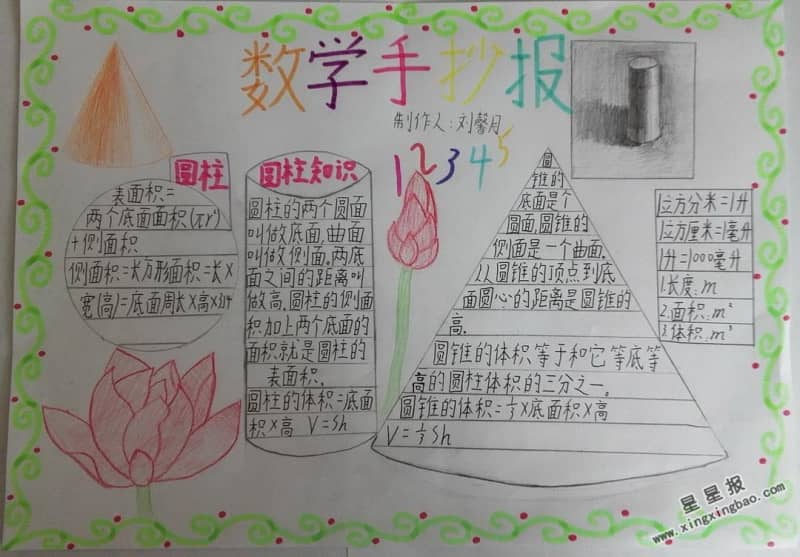 数学手抄报
制作人:刘馨月
1 2 3 4 5
圆柱
表面积=
两个底面面积(πr²)
+侧面积
侧面积=长方形面积=长×
宽(高)=底面周长×高×3.14
圆柱知识
圆柱的两个圆面
叫做底面,曲面
叫做侧面,两底
面之间的距离叫
做高,圆柱的侧面
积加上两个底面的
面积就是圆柱的
表面积。
圆柱的体积=底面
积×高 V=Sh
圆
锥的
底面是个
圆面,圆锥的
侧面是一个曲面,
从圆锥的顶点到底
面圆心的距离是圆锥的
高.
圆锥的体积等于和它等底等
高的圆柱体积的三分之一。
圆锥的体积=⅓×底面积×高
V=⅓Sh
1立方分米=1升
1立方厘米=1毫升
1升=1000毫升
1.长度:m
2.面积:m²
3.体积:m³
星星报
www.xingxingbao.com